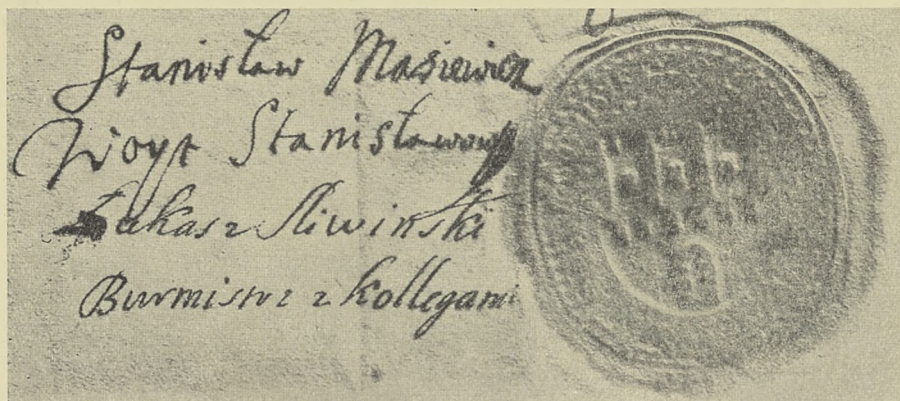 Stanisław Masiewicz
Woyt Stanisławows
Łukasz Sliwinski
Burmistrz z kollegami